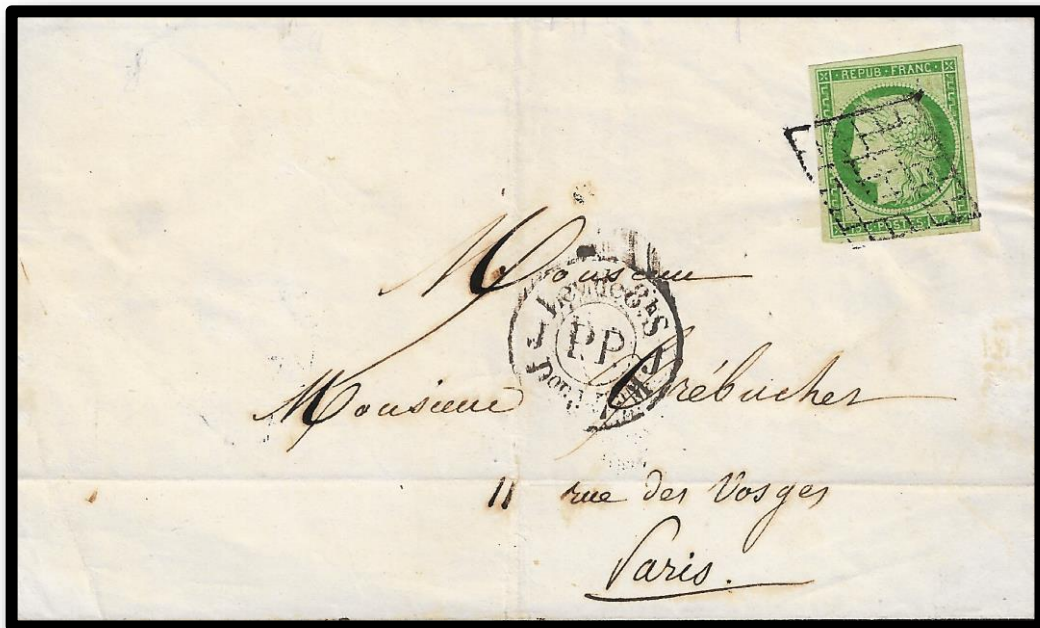 REPUB · FRANC ·
POSTES
Monsieur
PP
Monsieur Trébuchet
11 rue des Vosges
Paris.